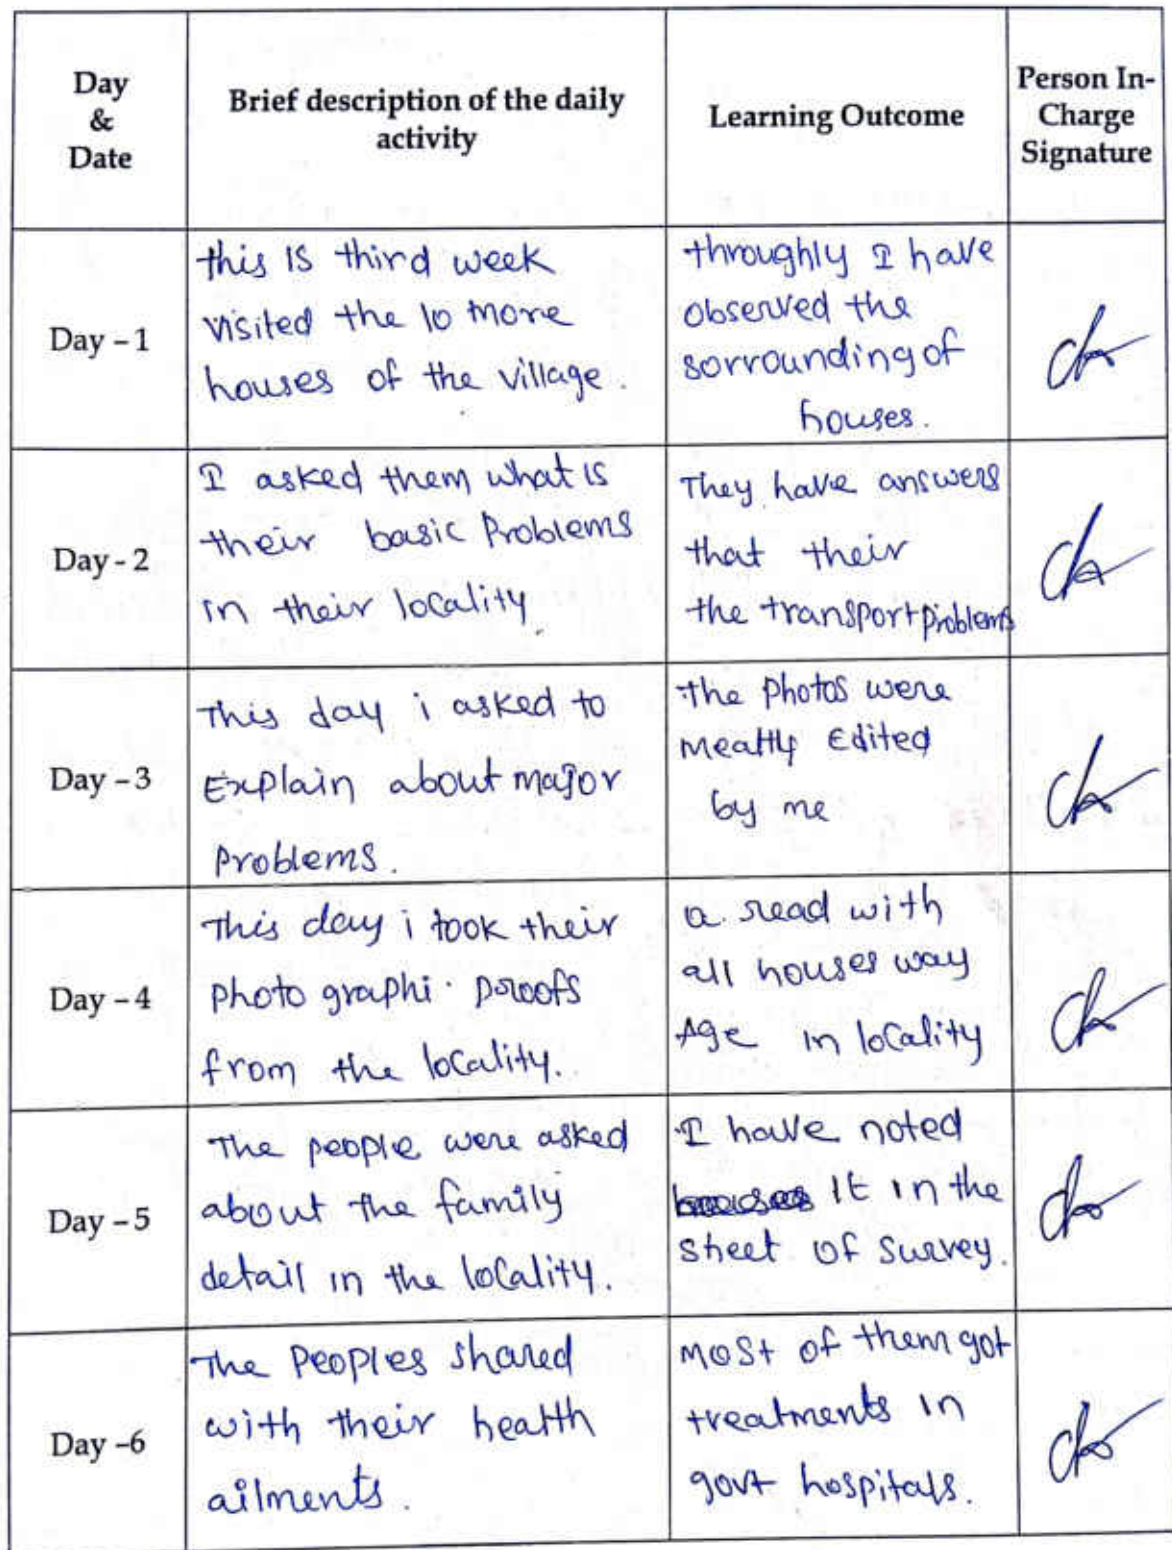 Day
&
Date
Brief description of the daily
activity
Learning Outcome
Person In-
Charge
Signature
Day – 1
this is third week
visited the 10 more
houses of the village.
throughly I have
observed the
sorrounding of
houses.
Day - 2
I asked them what is
their basic Problems
in their locality.
They have answers
that their
the transport problems
Day – 3
This day i asked to
Explain about major
problems.
The photos were
Edited
by me
Day – 4
This day i took their
photo graphi. proofs
from the locality.
a read with
all houses way
Age in locality
Day – 5
The people were asked
about the family
detail in the locality.
I have noted
it in the
sheet of survey.
Day –6
The Peoples shared
with their health
ailments.
most of them got
treatments in
govt hospitals.